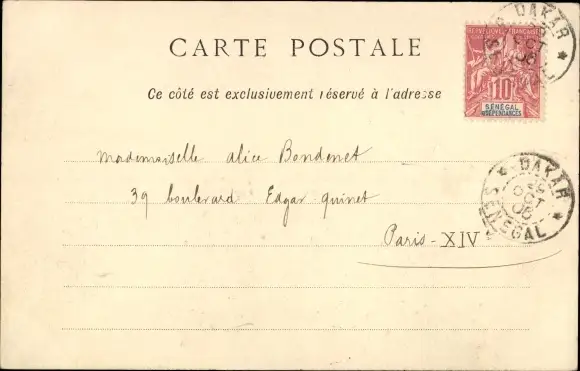 CARTE POSTALE
Ce côté est exclusivement réservé à l'adresse
RÉPUBLIQUE FRANÇAISE
10
SÉNÉGAL
DÉPENDANCES
DAKAR
Mademoiselle Alice Bondenet
39 boulevard Edgar-quinet
Paris-XIV
DAKAR
OCT
SENEGAL